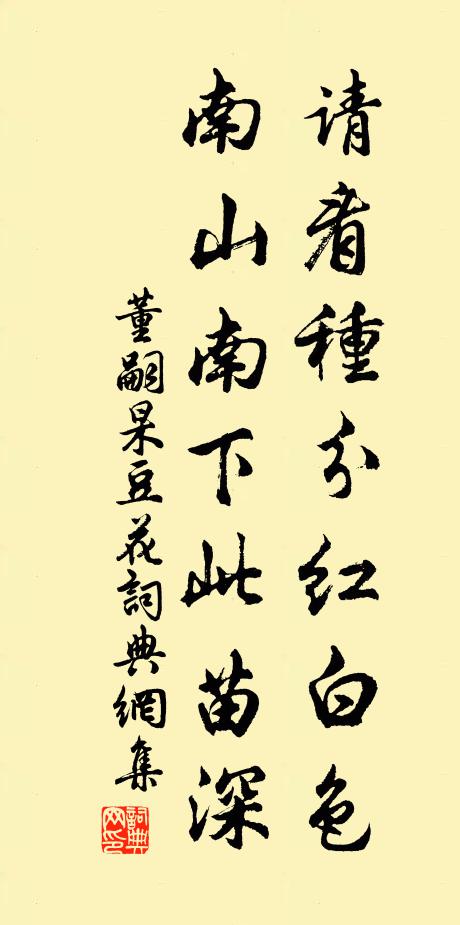 请看種分红白色
南山南下此苗深
董嗣杲豆花詞典網集
詞典网印